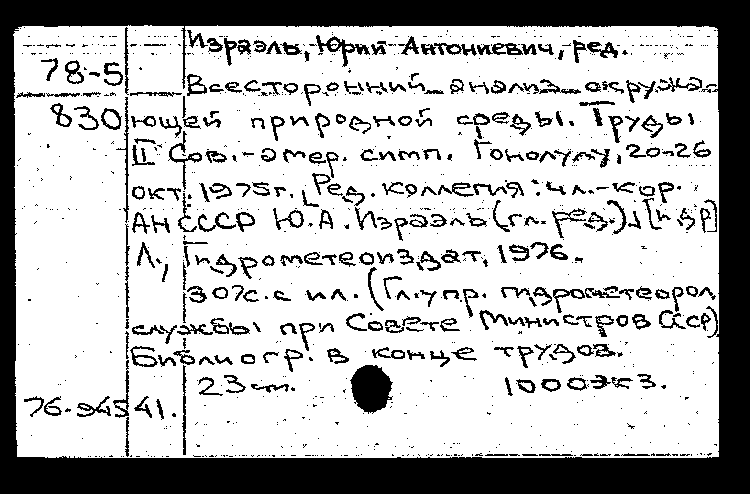 Израэль, Юрий Антониевич, ред.
78-5
Всесторонний анализ окружа-
830 ющей природной среды. Труды
II Сов.-амер. симп. Гонолулу, 20-26
окт. 1975г. [Ред. коллегия: чл.-кор.
АН СССР Ю.А. Израэль (гл. ред.) и др]
Л., Гидрометеоиздат, 1976.
307с. с ил. (Гл. упр. гидрометеорол.
службы при Совете Министров СССР)
Библиогр. в конце трудов.
23 см. 1000экз.
76-94541.